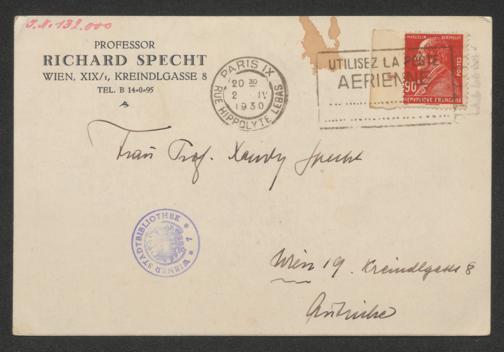 J.N. 132.000
PROFESSOR
RICHARD SPECHT
WIEN, XIX/1, KREINDLGASSE 8
TEL. B 14-0-95
PARIS IX
20 30
2 IV
1930
RUE HIPPOLYTE LEBAS
UTILISEZ LA POSTE
AERIENNE
MARCELIN BERTHELOT
90c
POSTES
RÉPUBLIQUE FRANÇAISE
Frau Prof. Specht
WIENER STADTBIBLIOTHEK
Wien 19. Kreindlgasse 8
Autriche